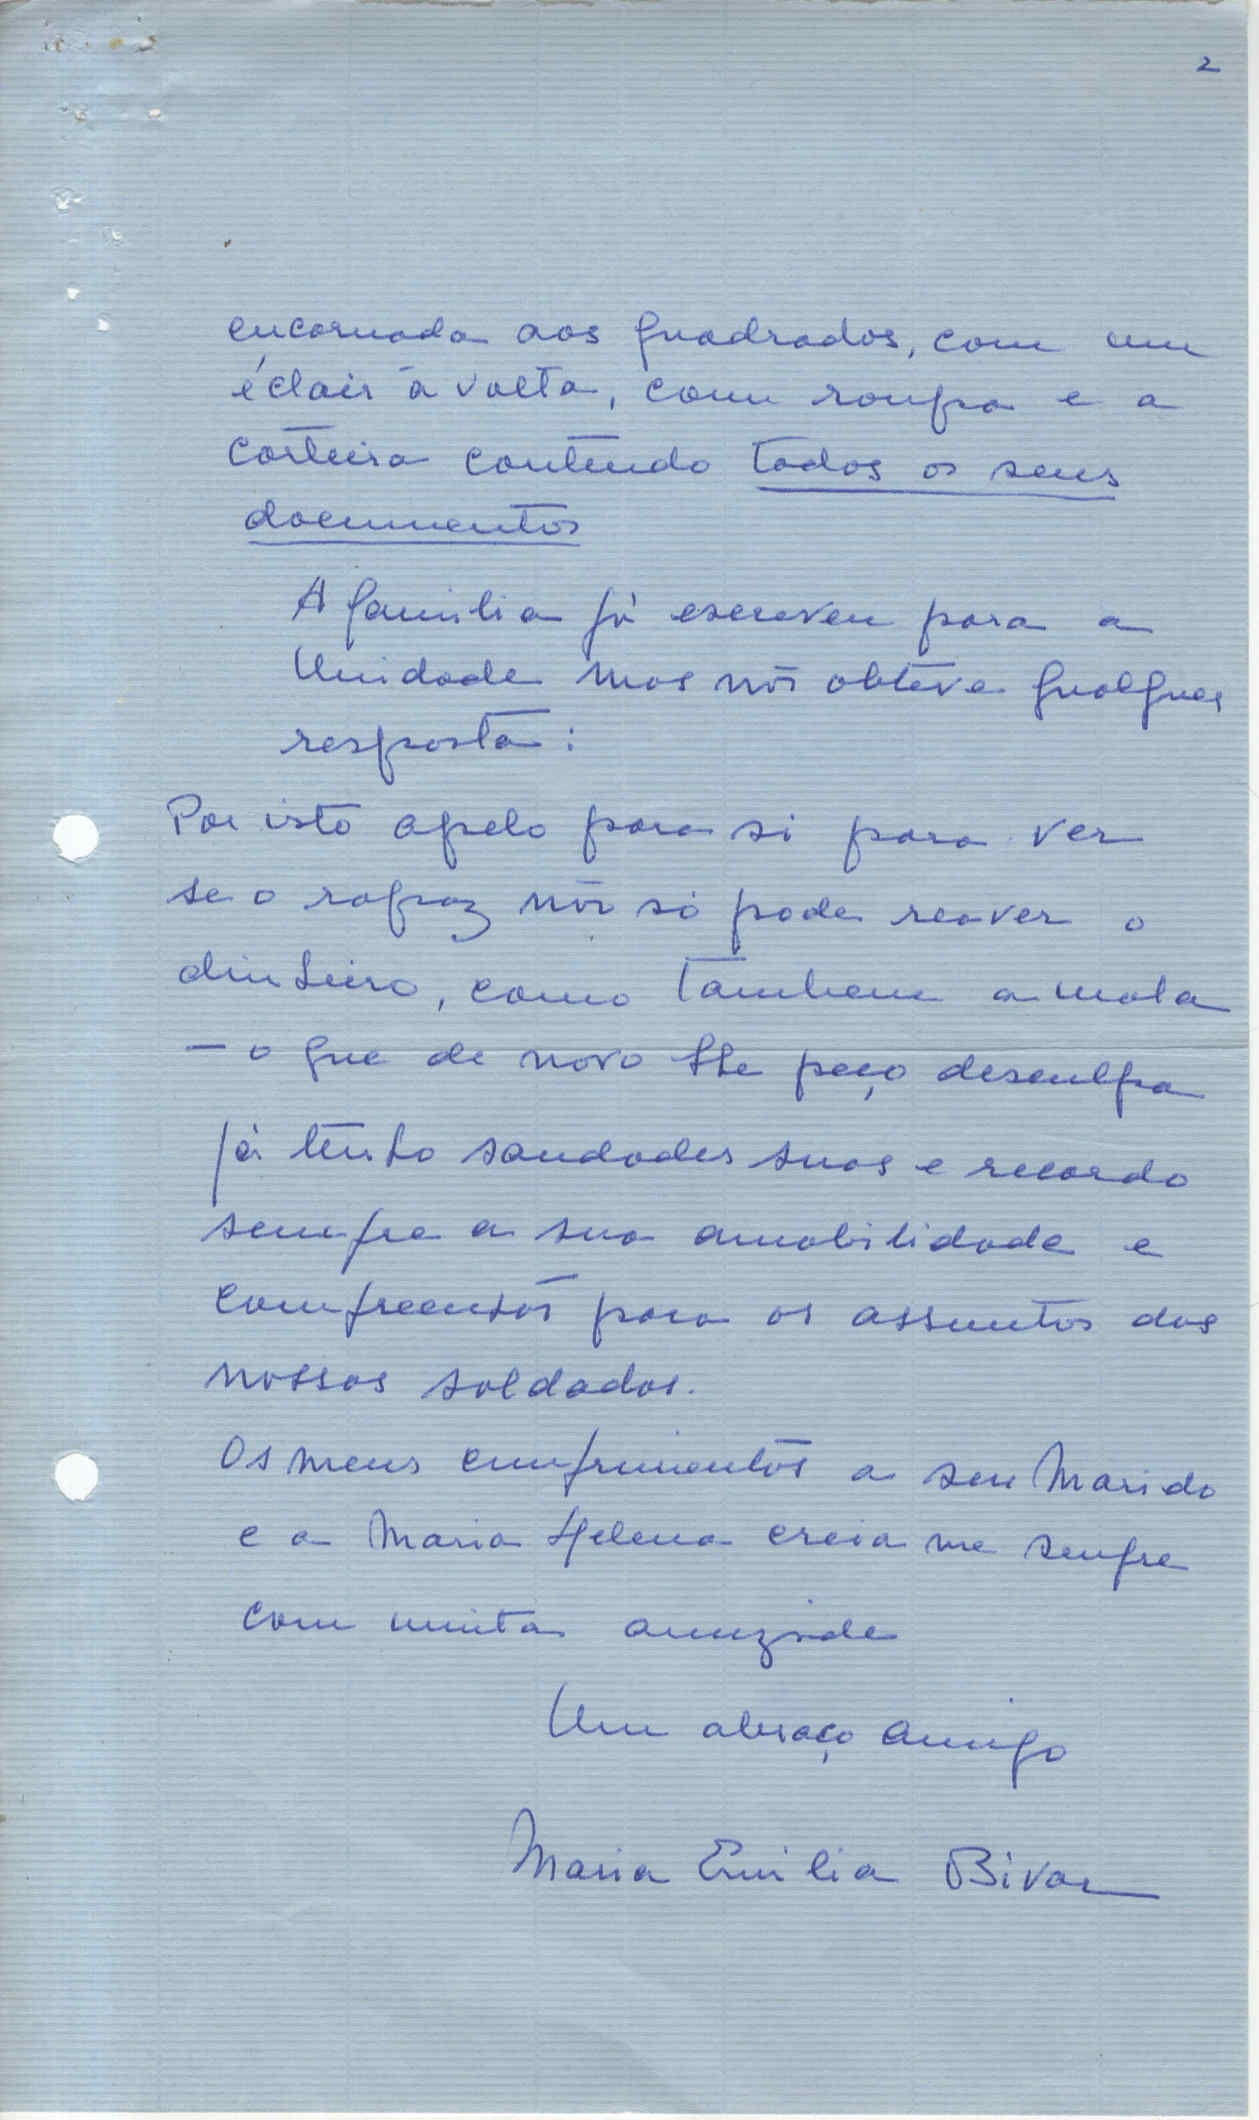 2
encarnada aos quadrados, com um
éclair à volta, com roupa e a
carteira contendo todos os seus
documentos
A familia já escreveu para a
Unidade mas não obteve qualquer
resposta:
Por isto apelo para si para ver
se o rapaz não só pode reaver o
dinheiro, como tambem a mala
– o que de novo lhe peço desculpa
Já tenho saudades suas e recordo
sempre a sua amabilidade e
compreensão para os assuntos dos
nossos soldados.
Os meus cumprimentos a seu Marido
e a Maria Helena creia me sempre
com muita amizade
Um abraço amigo
Maria Emilia Bivar